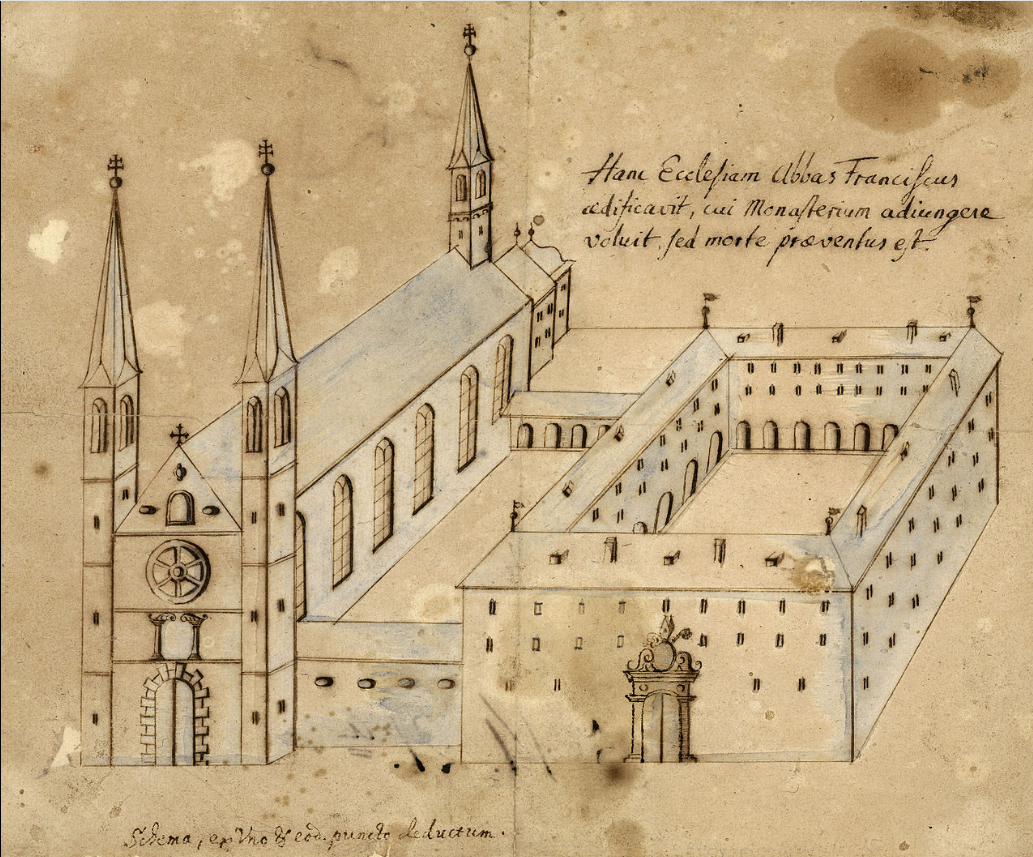 Hanc Ecclesiam Abbas Franciscus
ædificavit, cui Monasterium adiungere
voluit, sed morte præventus est.
Schema, ex Vno & eod. puncto deductum.